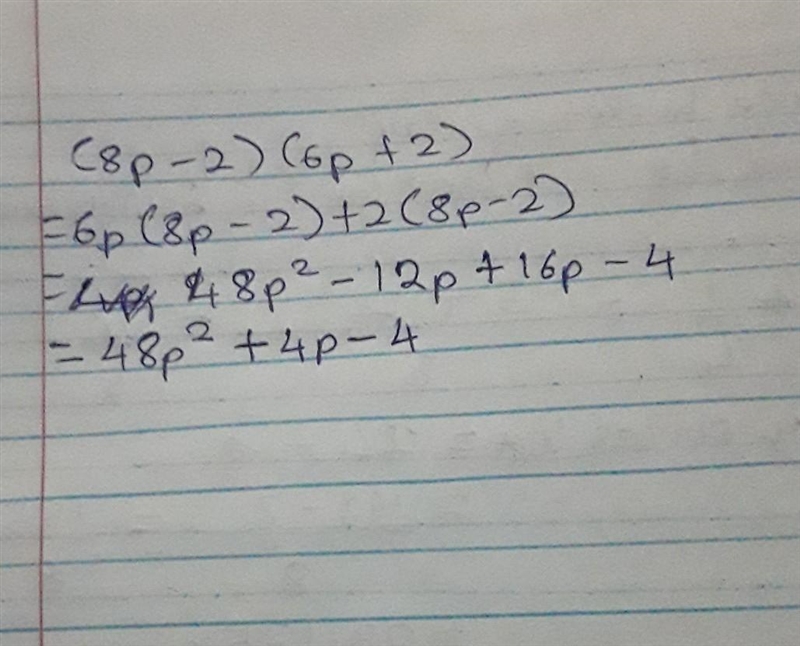 (8p - 2) (6p + 2)
= 6p (8p - 2) + 2 (8p - 2)
= 48p² - 12p + 16p - 4
= 48p² + 4p - 4